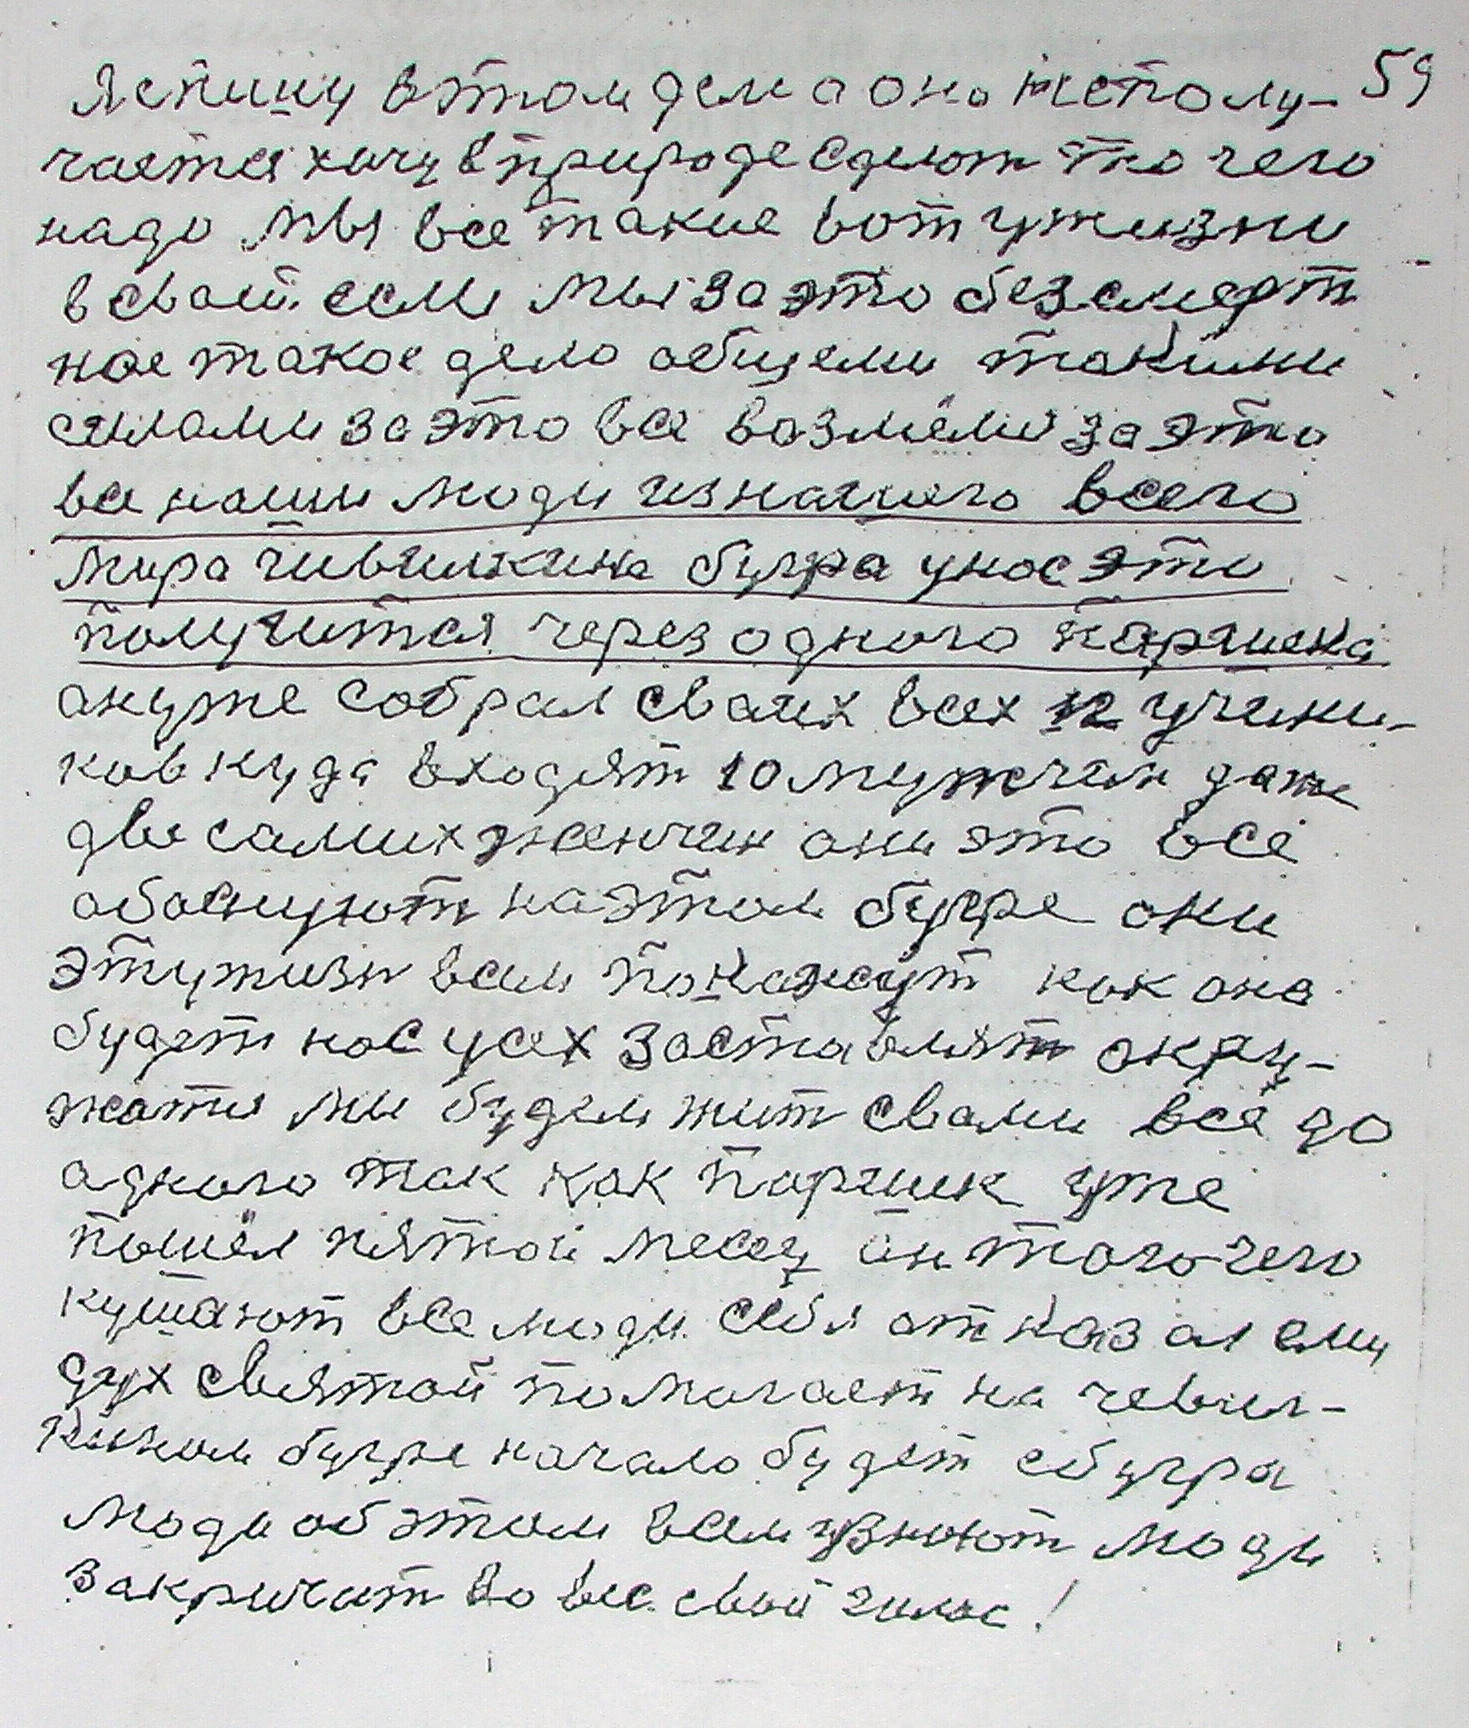 Я спишу в этом деле а оно не полу- 59
чается хочу в природе сделат то чего
надо мы все такие вот у жизни
в своей сели мы за это безсмерт
ное такое дело общеми такими
силами за это все возмёмся за это
все наши люди из нашего всего
мира чивилкина бугра у нас это
получится через одного паршека
он уже собрал своих всех 12 учини-
ков куда входят 10 мужчин даже
две самих женчин они это всё
обоснуют на этом бугре они
эту жизн всем покажут как она
будет нас усех заставлят окру-
жатся ми будем жит свами все до
одного так как паршик уже
пошёл пятой месец он того чего
кушают все люди себя отказал ему
дух святой помогает на чевил-
кином бугре начало будет с бугра
люди об этом всем узнают люди
закричат во вес свой голос!